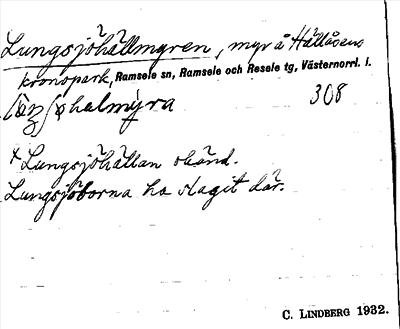 Lungsjöhällmyren, myr å Hällåsens
kronopark, Ramsele sn, Ramsele och Resele tg, Västernorrl. l.
308
x Lungsjöhällan okänd.
Lungsjöborna ha slagit där.
C. LINDBERG 1932.